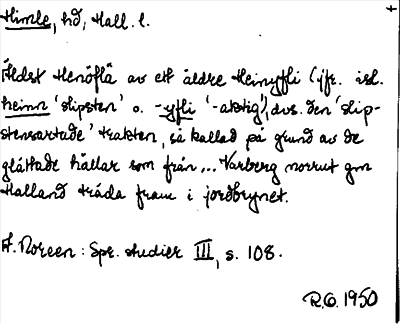 Himle, hd, Hall. l.
Äldst Henöflä av ett äldre Heinyfli (jfr. isl.
heinn 'slipsten' o. -yfli '-aktig', dvs. den 'slip-
stensartade' trakten, så kallad på grund av de
glättade hällar som från... Varberg norrut gm
Halland träda fram i jordbrynet.
A. Noreen: Spr. studier III, s. 108.
R.O. 1950